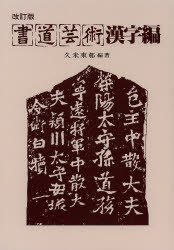 改訂版
書道芸術漢字編
久米東邨編著
邑主中散大夫
滎陽太守孫道務
寧遠將軍中散大
夫潁川太守安城
令衛白犢